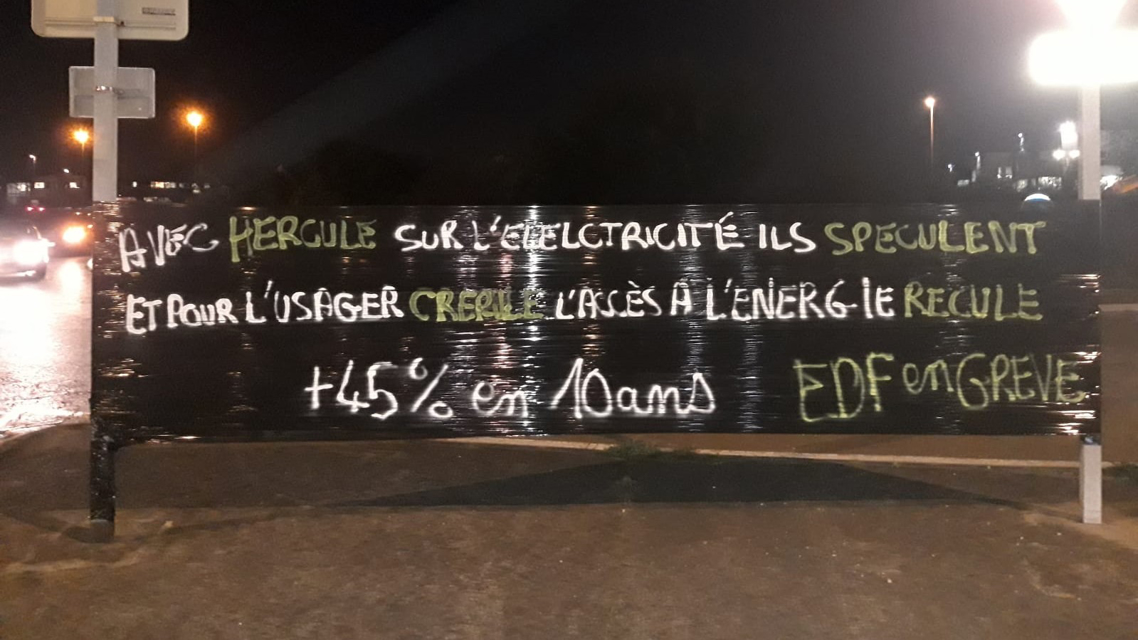 AVEC HERCULE SUR L'ELELCTRICITÉ ILS SPECULENT
ET POUR L'USAGER CREDULE L'ASSÈS A L'ENERGIE RECULE
+45% en 10 ans EDF en GREVE